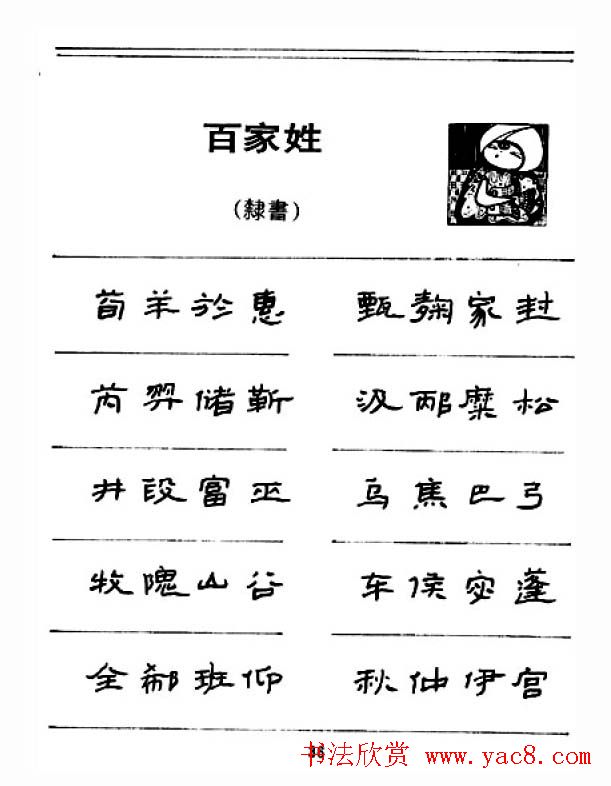 百家姓
(隸書)
荀羊於惠 甄麹家封
芮羿储靳 汲邴糜松
井段富巫 乌焦巴弓
牧隗山谷 车侯宓蓬
全郗班仰 秋仲伊宫
书法欣赏 www.yac8.com